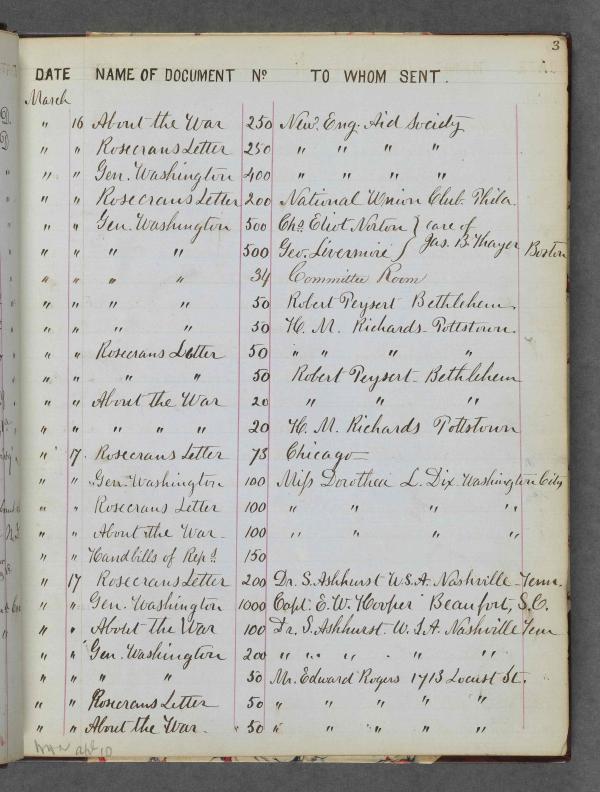 3
DATE NAME OF DOCUMENT No TO WHOM SENT.
March
" 16 About the War 250 New. Eng. Aid Society
" " Rosecrans Letter 250 " " " "
" " Gen. Washington 400 " " " "
" " Rosecrans Letter 200 National Union Club Phila.
" " Gen. Washington 500 Chs. Eliot Norton } care of
" " " " 500 Geo. Livermore } Jas. B. Thayer Boston
" " " " 34 Committee Room
" " " " 50 Robert Peysert Bethlehem
" " " " 50 H. M. Richards - Pottstown.
" " Rosecrans Letter 50 " " " "
" " " " 50 Robert Peysert - Bethlehem
" " About the War 20 " " "
" " " " " " 20 H. M. Richards Pottstown
" 17. Rosecrans Letter 75 Chicago
" " Gen. Washington 100 Miss Dorothea L. Dix. Washington City
" " Rosecrans Letter 100 " " " "
" " About the War 100 " " " "
" " Handbills of Rep. 150
" 17 Rosecrans Letter 200 Dr. S. Ashhurst U.S.A. Nashville - Tenn.
" " Gen. Washington 1000 Capt. E. W. Hooper Beaufort, S.C.
" " About the War 100 Dr. S. Ashhurst. U.S.A. Nashville Tenn
" " Gen. Washington 200 " " " " " " "
" " " " 50 Mr. Edward Rogers 1713 Locust St.
" " Rosecrans Letter 50 " " " " "
" " About the War. 50 " " " " "